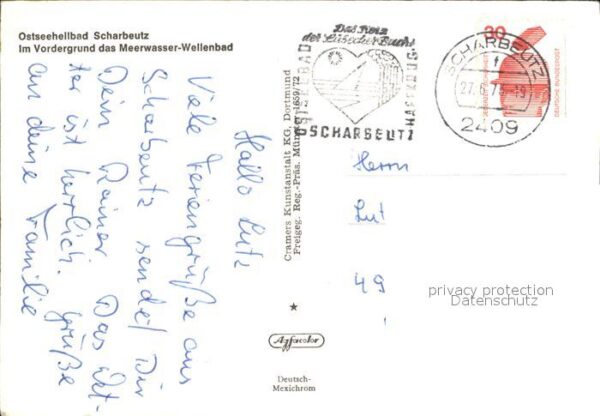 Ostseeheilbad Scharbeutz
Im Vordergrund das Meerwasser-Wellenbad
Hallo Lutz
Viele Feriengrüße aus
Scharbeutz sendet Dir
Dein Rainer. Das Wet-
ter ist herrlich. Grüße
an deine Familie
Cramers Kunstanstalt KG, Dortmund
Freigeg. Reg.-Präs. Münster
★
Agfacolor
Deutsch-
Mexichrom
Das Herz
der Lübecker Bucht
OSTSEEBAD
HAFFKRUG
SCHARBEUTZ
SCHARBEUTZ
f
2409
30
DEUTSCHE BUNDESPOST
Herrn
Lut
49
privacy protection
Datenschutz